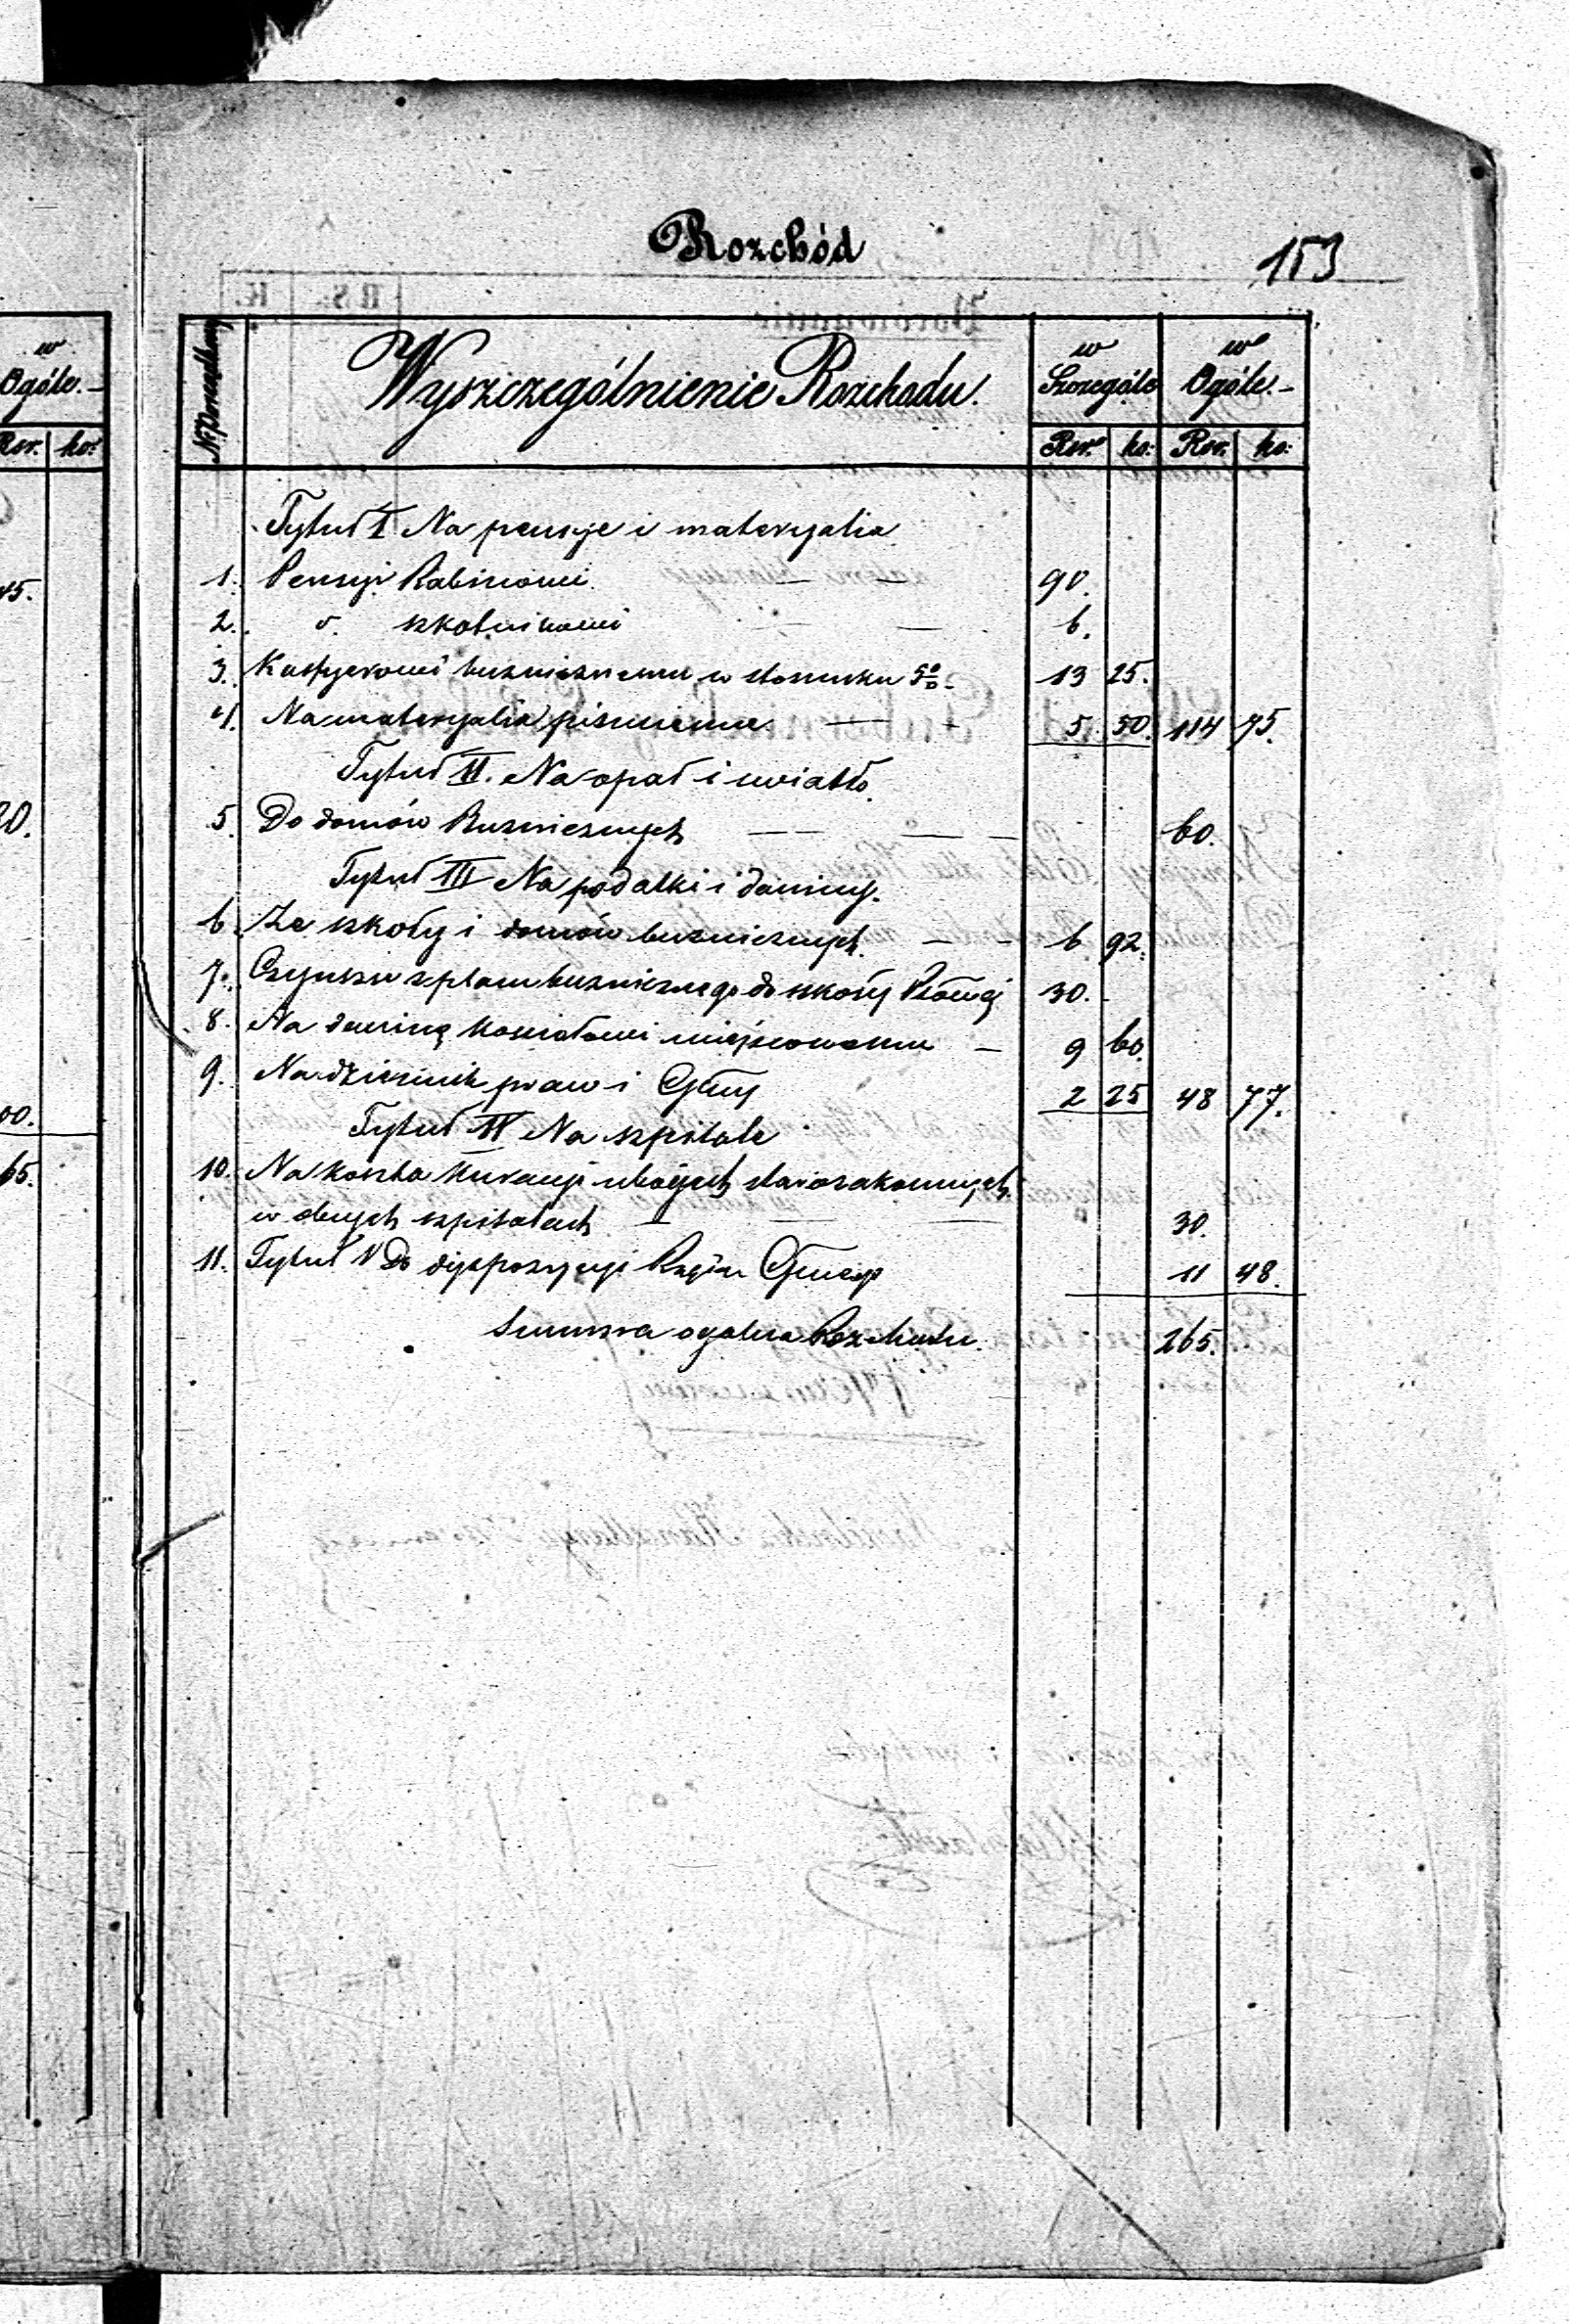 Rozchód
153
w Ogóle.-
Rsr. ko:
N. Porządkowy
Wyszczególnienie Rozchodu.
w Szczególe
w Ogóle.-
Rsr. ko: Rsr. ko:
Tytuł I Na pensye i materyalia
1. Pensyi Rabinowi — — 90.
2. szkolnikowi — 6.
3. Kassyerowi bużnicznemu w stosunku 5%- 13 25.
4. Na materyalia piśmienne — 5. 50. 114 75.
Tytuł II. Na opał i swiatło.
5. Do domów Bużnicznych — — 60.
Tytuł III Na podatki i daniny.
6. Ze szkoły i domów bużnicznych. — - 6 92.
7. Czynszu z placu bużnicznego do szkoły 30.
8. Na daninę Kościołowi miejscowemu — 9 60.
9. Na dziennik praw i 2 25 48 77.
Tytuł IV Na szpitale
10. Na koszta kuracyi ubogich starozakonnych
w obcych szpitalach — — — 30.
11. Tytuł V Do dyspozycyi Rządu 11 48.
Summa ogólna Rozchodu. 265.
45.
20.
00.
65.